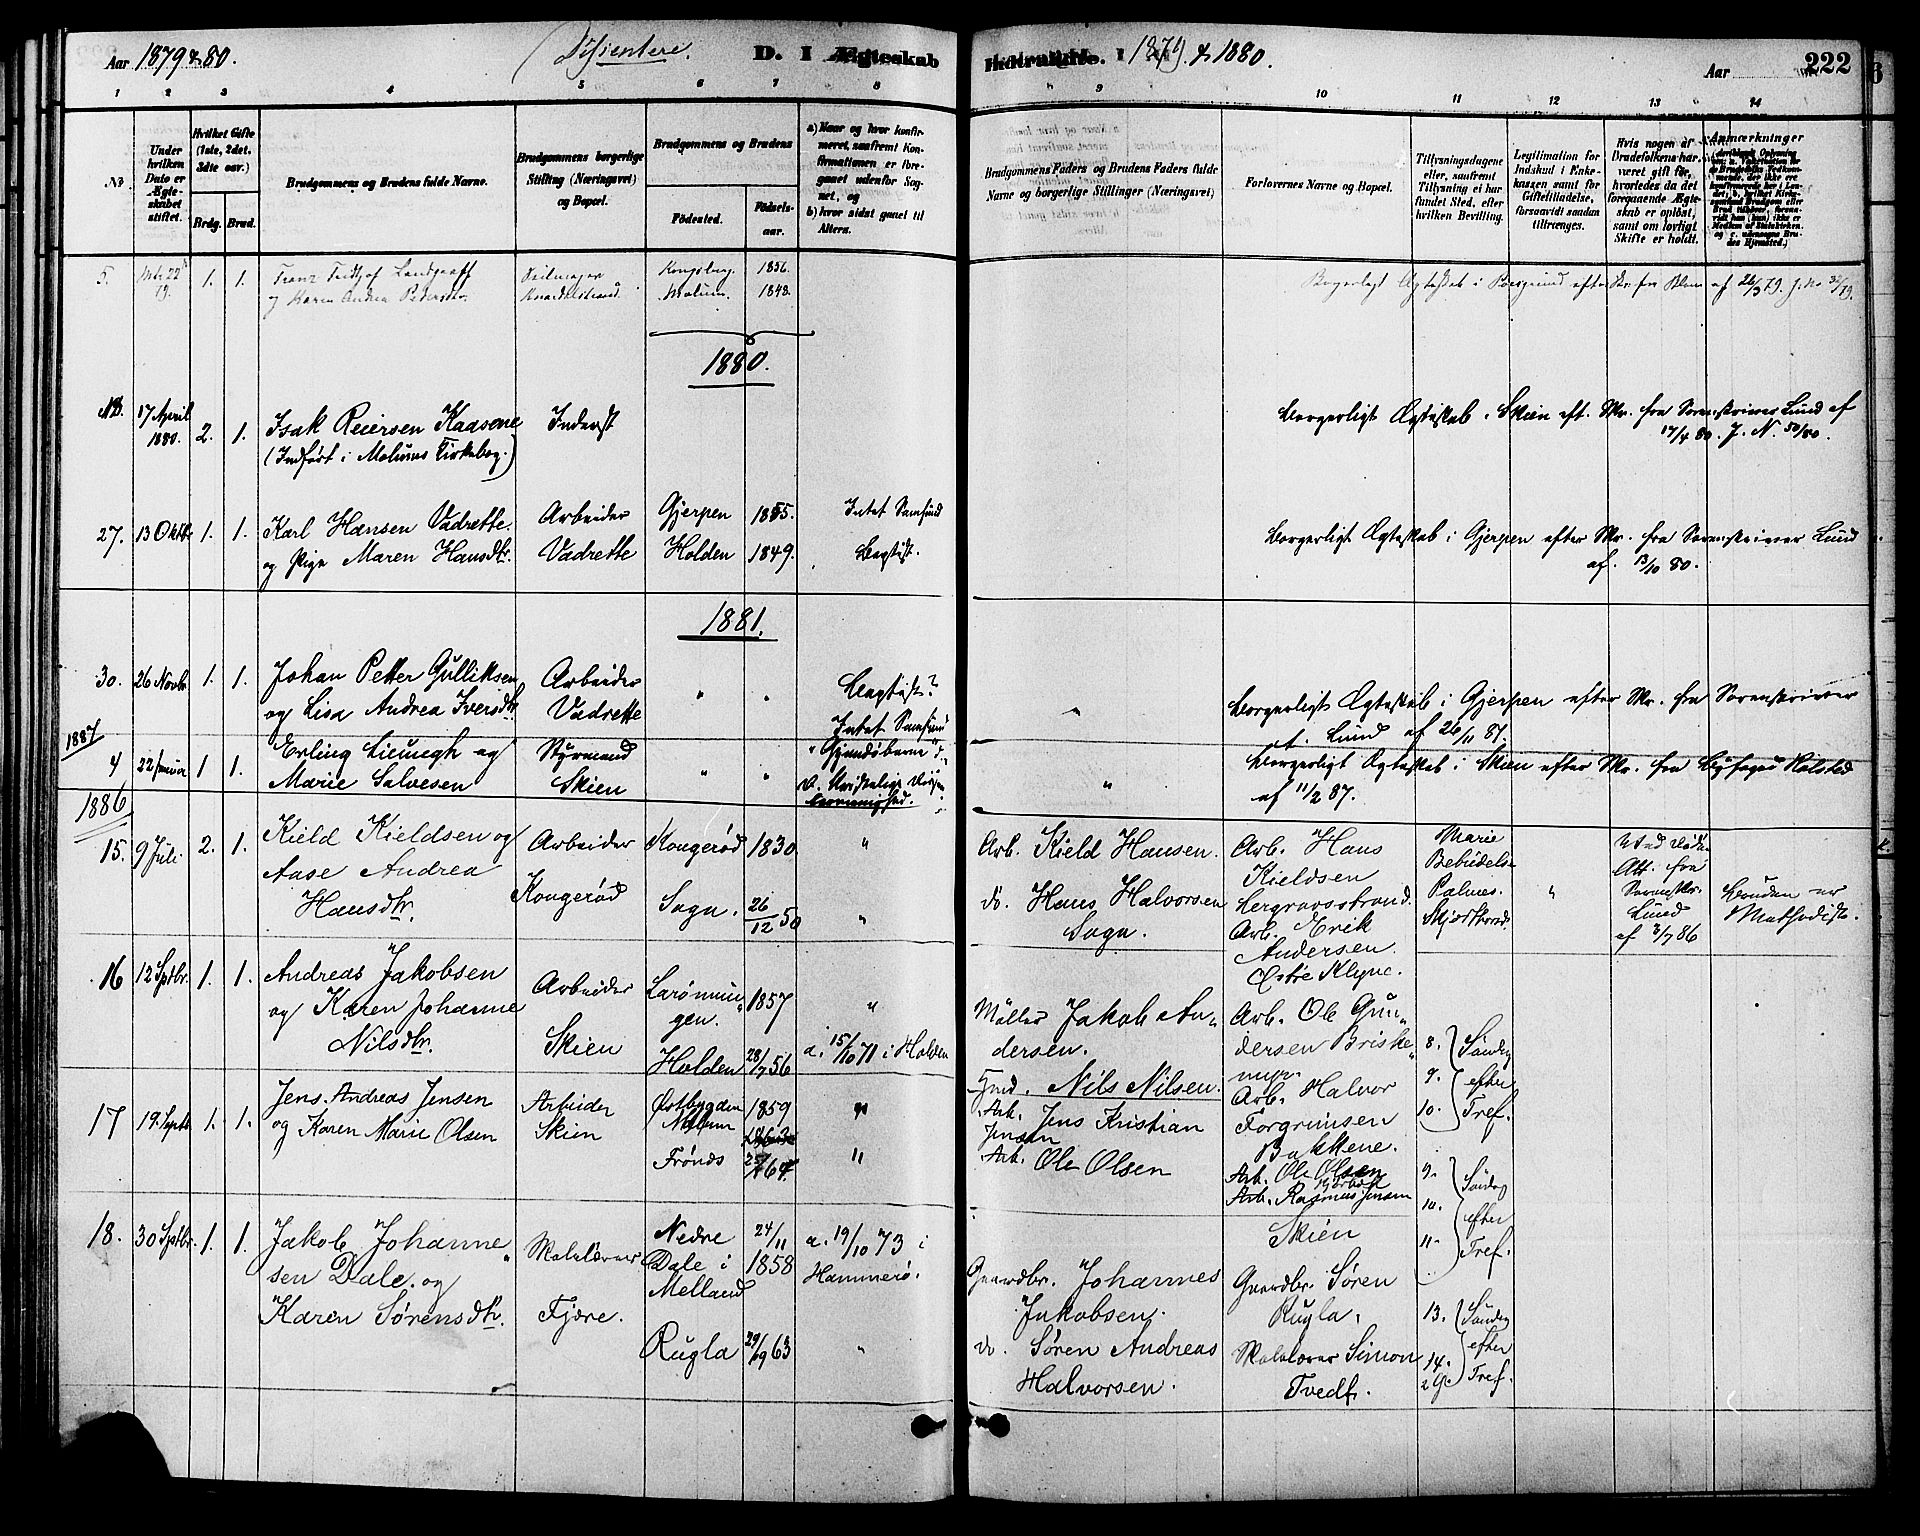 Aar 1879 & 80.
Dissentere.
D. I Ægteskab
Indtraadte. I 1879. & 1880.
Aar
222
1 2 3 4 5 6 7 8
9 10 11 12 13 14
No.
Under
hvilken
Dato er
Ægte-
skabet
stiftet.
Hvilket Gifte
(1ste, 2det.
3dte osv.)
Brdg. Brud.
Brudgommens og Brudens fulde Navne.
Brudgommens borgerlige
Stilling (Næringsvei)
og Bopæl.
Brudgommens og Brudens
Födested.
Födsels-
aar.
a) Naar og hvor konfir-
meret, saafremt Kon-
firmationen er fore-
gaaet udenfor Sog-
net, og
b) hvor sidst gaaet til
Alters.
Brudgommens Faders og Brudens Faders fulde
Navne og borgerlige Stillinger (Næringsvei)
Forlovernes Navne og Bopæl.
Tillysningsdagene
eller, saafremt
Tillysning ei har
fundet Sted, efter
hvilken Bevilling.
Legitimation for
Indskud i Enke-
kassen samt for
Giftetilladelse,
forsaavidt saadan
tiltrænges.
Hvis nogen af
Brudefolkene har
været gift för,
hvorledes da det
foregaaende Ægte-
skab er oplöst,
samt om lovligt
Skifte er holdt.
Anmærkninger
5. 22 79. 1. 1. Franz Fridtjof Landgraff Kongsberg. 1856.
og Karen Andrea Pedersdtr. Solum. 1848.
Borgerligt Ægteskab i Porsgrund efter Skr. fra af 26/3 79. J. No 32/79.
1880.
17 April 1880. 2. 1. Isak Reiersen Kaasene Inderst
(Indført i Solums Kirkebog.)
Borgerligt Ægteskab i Skien eft. Skr. fra Sorenskriver Lund af
17/4 80. J. N. 50/80.
27. 13 Oktbr 1. 1. Karl Hansen Vadrette. Arbeider Gjerpen 1855. Intet Samfund
og Pige Maren Hansdtr. Vadrette Holden 1849. Baptist.
Borgerligt Ægteskab i Gjerpen efter Skr. fra Sorenskriver Lund
af. 13/10 80.
1881.
30. 26 Novbr. 1. 1. Johan Petter Gulliksen Arbeider " " Baptist?
og Lisa Andrea Iversdtr. Vadrette Intet Samfund
Borgerligt Ægteskab i Gjerpen efter Skr. fra Sorenskriver
Lund af 26/11 81.
1887
4 22 Januar 1 1. Erling og Styrmand " "
Marie Salvesen Skien
Borgerligt Ægteskab i Skien efter Skr. fra Byfoged Holsted
af 11/2 87.
1886
15. 9 Juli 2. 1. Kield Kieldsen og Arbeider Kongerød 1830 "
Aase Andrea Kongerød
Hansdtr. Sogn. 26/12 50 "
Arb. Kield Hansen.
do. Hans Halvorsen
Sogn.
Arb. Hans
Kieldsen
Bergravsstrand.
Arb. Erik
Andersen.
Østre Klyve.
Marie
Bebudelse
Palmes.
Skjærthorsd.
"
Att. fra
Sorenskr.
Lund
af 3/7 86
Bruden er
Methodist.
16 12 Septbr. 1. 1. Andreas Jakobsen Arbeider 1857 "
og Karen Johanne
Nilsdtr. Skien Holden 28/7 56 a. 15/10 71 i Holden
Møller Jakob An-
dersen.
Gmd. Nils Nilsen.
Arb. Ole Gun-
dersen Briske-
myr.
Arb. Halvor
Forgrimsen
Bakkene.
8.
9.
10.
Søndag
efter
Tref.
17 19. Septb 1. 1. Jens Andreas Jensen Arbeider Østbygden 1859 "
og Karen Marie Olsen Skien Solum
Frönes "
Arb. Jens Kristian
Jensen
Arb. Ole Olsen
Arb. Ole Olsen
Arb. Rasmus Jensen
Skien
9.
10.
11.
Søndag
efter
Tref.
18. 30 Septbr. 1. 1. Jakob Johanne- Skolelærer Nedre 24/11 a. 19/10 73 i
sen Dale. og Dale i 1858 Hammerø.
Melland
Karen Sørensdtr. Fjære. Rugla 29/9 63 "
Gaardbr. Johannes
Jakobsen.
do. Søren Andreas
Halvorsen.
Gaardbr. Søren
Rugla.
Skolelærer Simon
Tvedt.
13.
14.
29.
Søndag
efter
Tref.